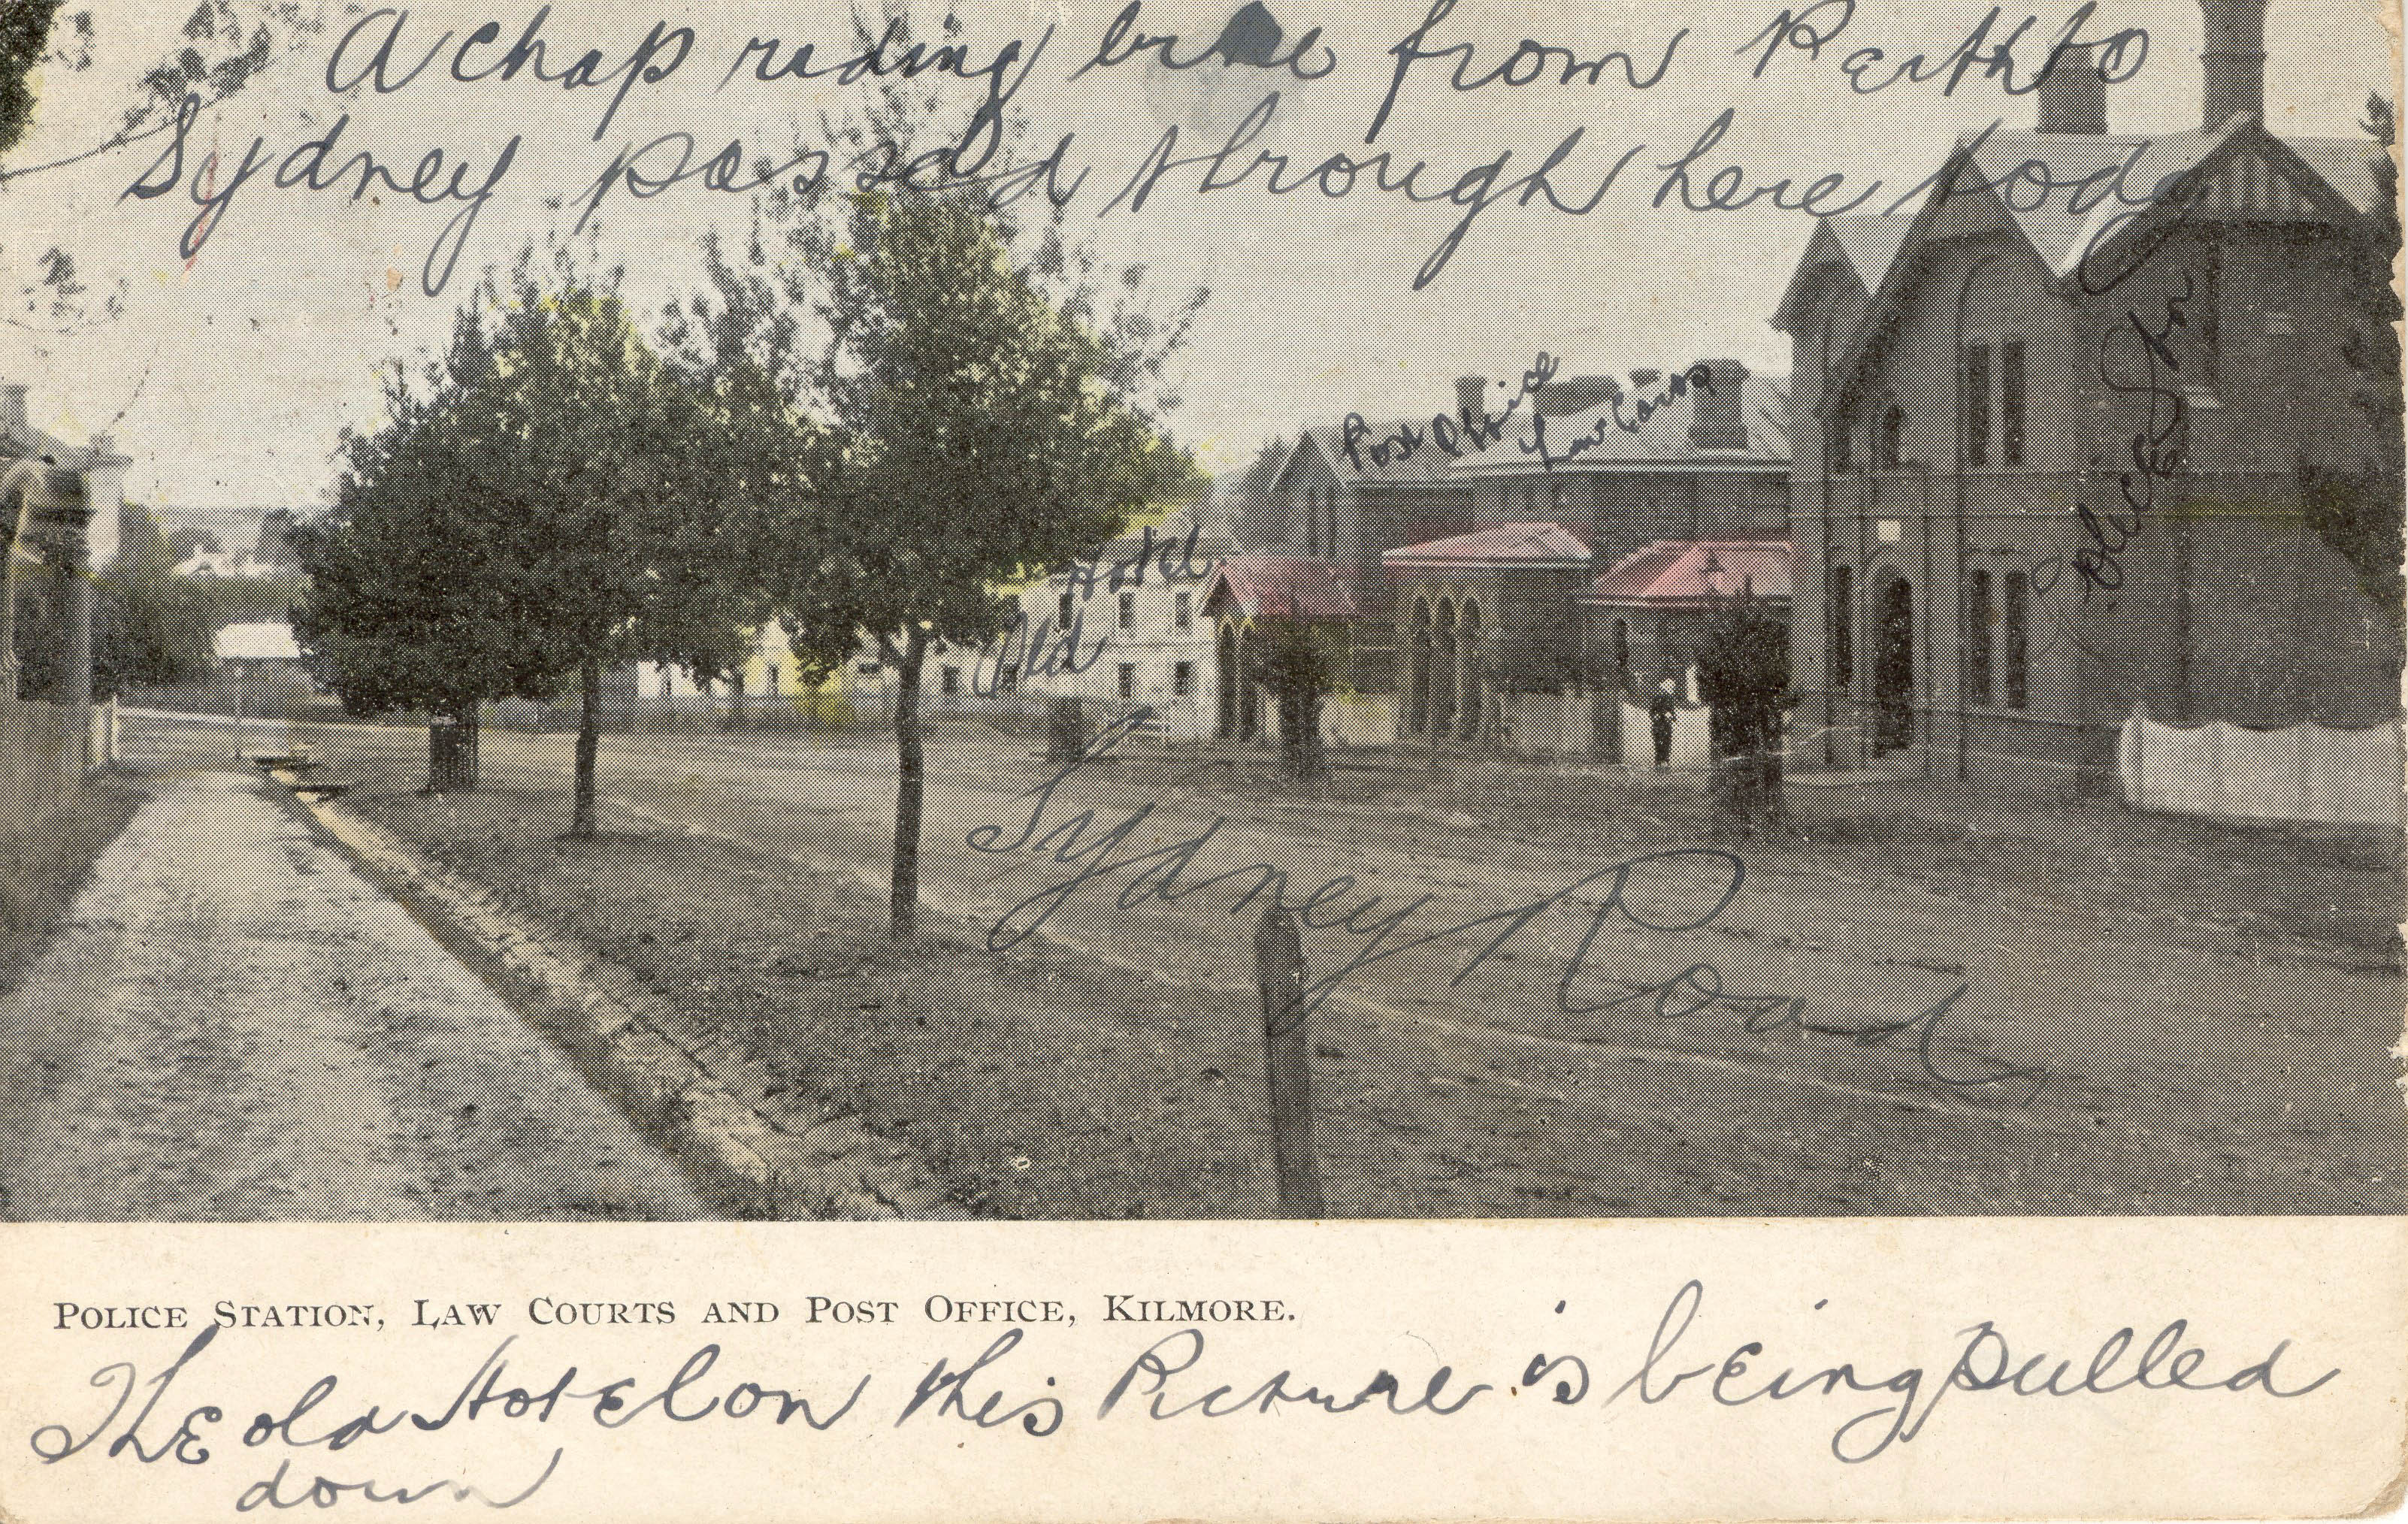 A chap riding bike from Perth to
Sydney passed through here today
Post Office
Law Corts
Police Stn
Hotel
Old
Sydney Road
POLICE STATION, LAW COURTS AND POST OFFICE, KILMORE.
The old Hotel on this Picture is being pulled
down